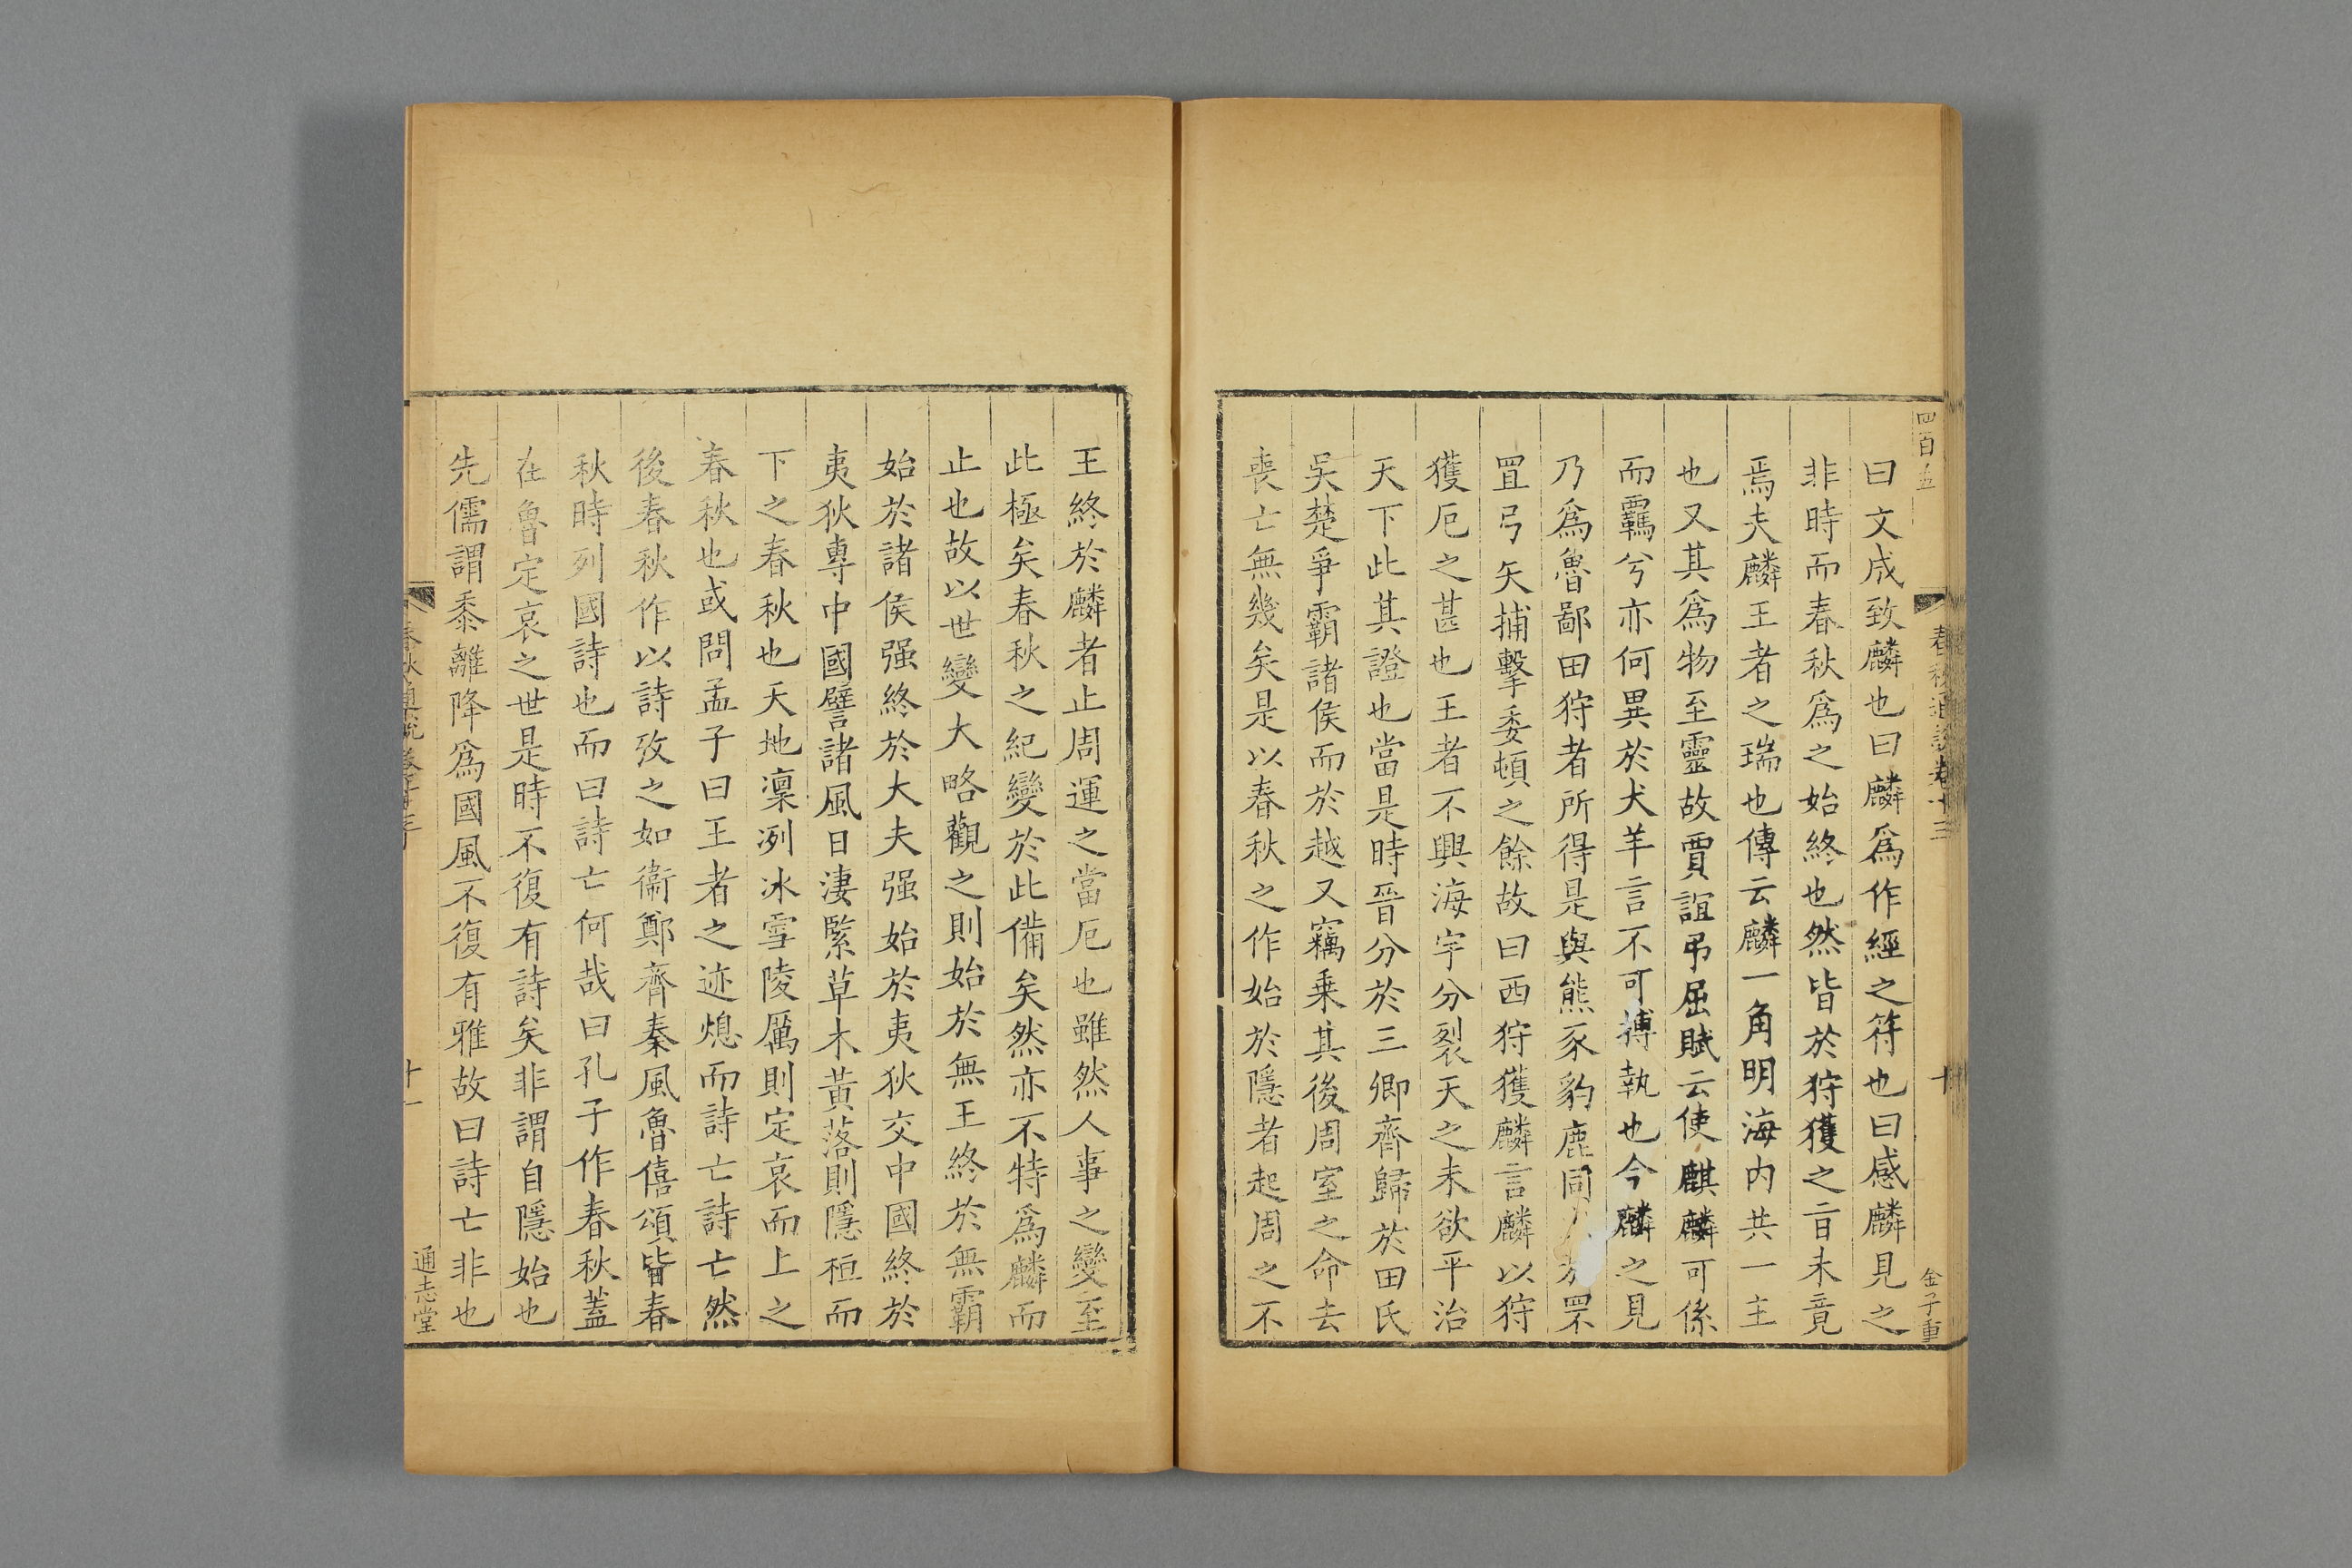 四百五
春秋通說卷十三
十
金子重
曰文成致麟也曰麟爲作經之符也曰感麟見之
非時而春秋爲之始終也然皆於狩獲之㫖未竟
焉夫麟王者之瑞也傳云麟一角明海内共一主
也又其爲物至靈故賈誼弔屈賦云使麒麟可係
而羈兮亦何異於犬羊言不可搏執也今麟之見
乃爲魯鄙田狩者所得是與熊豕豹鹿同於罘
罝弓矢捕擊委頓之餘故曰西狩獲麟言麟以狩
獲厄之甚也王者不興海宇分裂天之未欲平治
天下此其證也當是時晉分於三卿齊歸於田氏
吳楚爭霸諸侯而於越又竊乗其後周室之命去
喪亡無幾矣是以春秋之作始於隱者起周之不
王終於麟者止周運之當厄也雖然人事之變至
此極矣春秋之紀變於此備矣然亦不特爲麟而
止也故以世變大略觀之則始於無王終於無霸
始於諸侯强終於大夫强始於夷狄交中國終於
夷狄專中國譬諸風日淒緊草木黃落則隱桓而
下之春秋也天地凜冽冰雪陵厲則定哀而上之
春秋也或問孟子曰王者之迹熄而詩亡詩亡然
後春秋作以詩攷之如衞鄭齊秦風魯僖頌皆春
秋時列國詩也而曰詩亡何哉曰孔子作春秋蓋
在魯定哀之世是時不復有詩矣非謂自隱始也
先儒謂黍離降爲國風不復有雅故曰詩亡非也
春秋通說卷十三
十一
通志堂